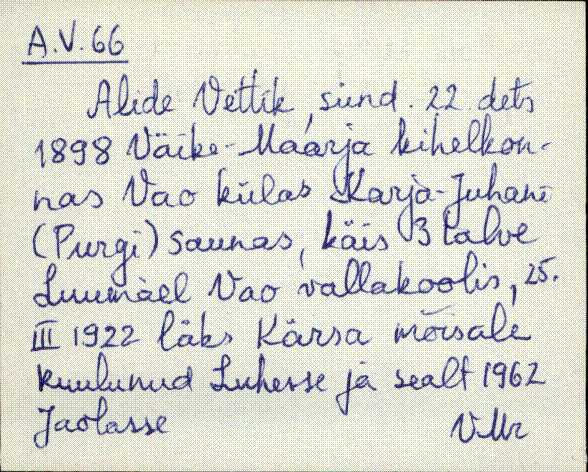 A.V. 66
Alide Vettik, sünd. 22. dets
1898 Väike-Maarja kihelkon-
nas Vao külas Karja-Juhani
(Purgi) saunas, käis 3 talve
Luumäel Vao vallakoolis, 25.
III 1922 läks Kärsa mõisale
kuulunud Luhesse ja sealt 1962
Jaolasse
VMr